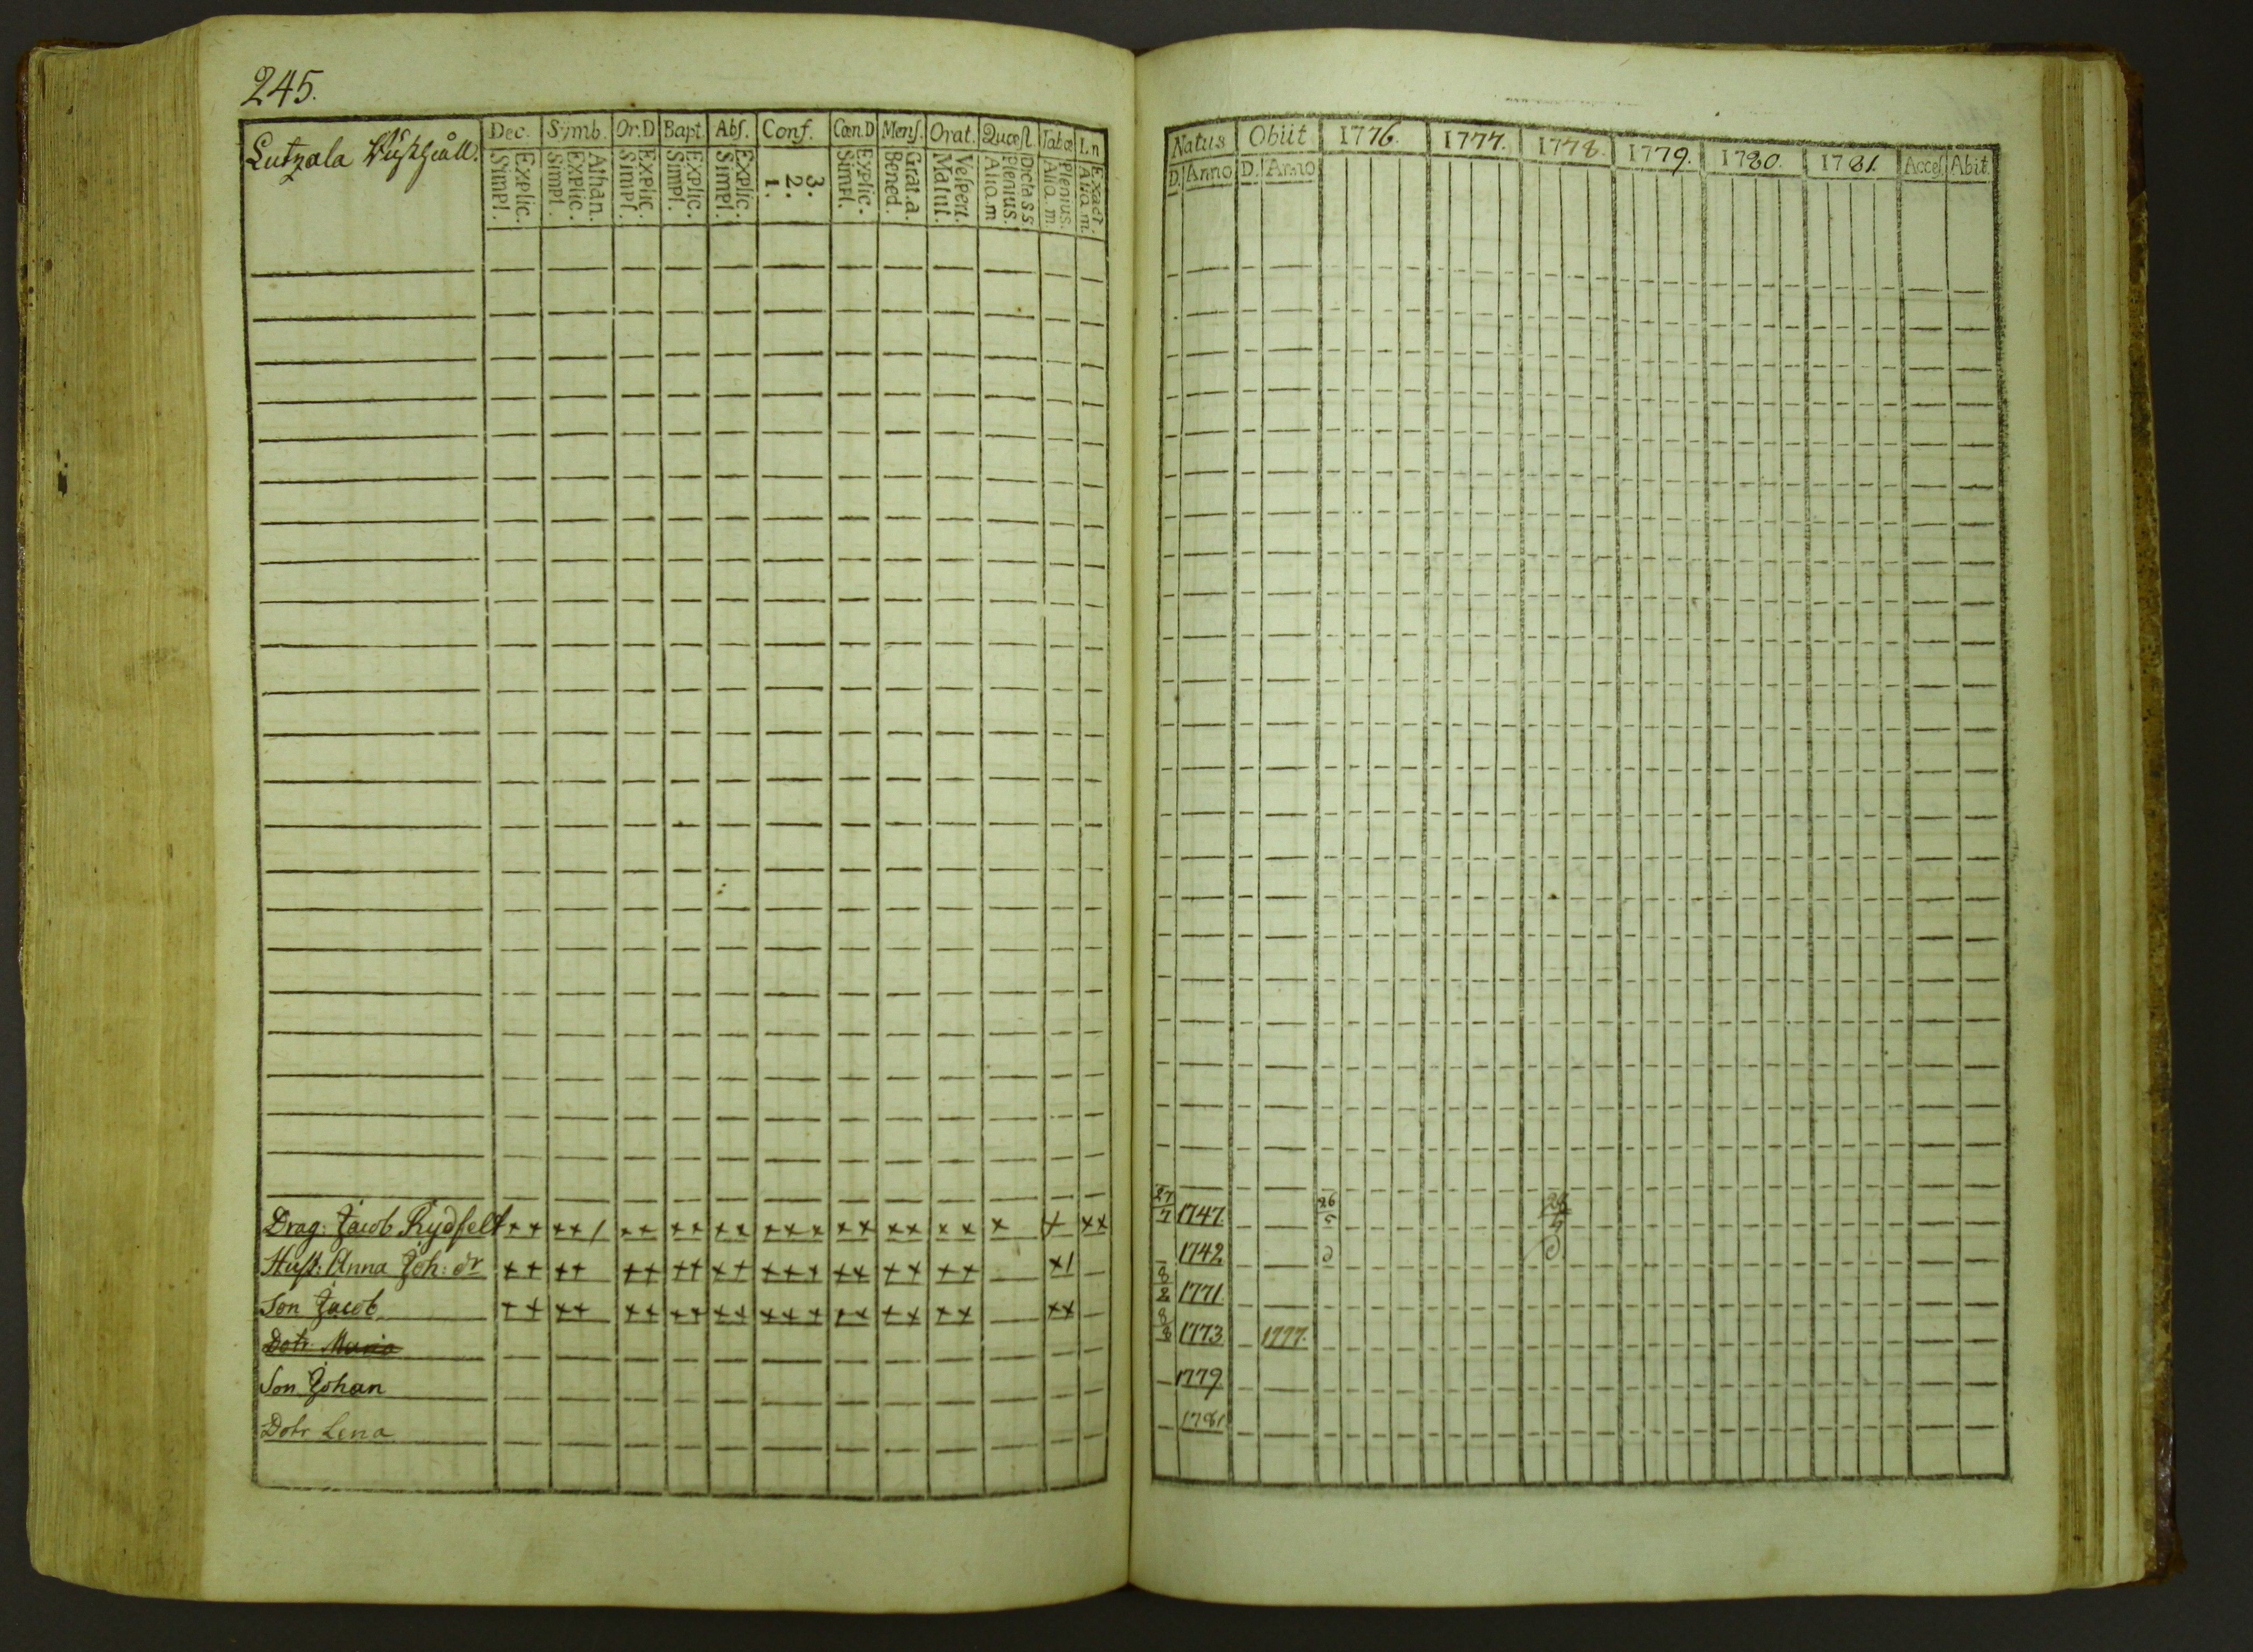 245.
Lutzala
Dec. Symb. Or.D Bapt. Abſ. Conf. Cœn.D Menſ. Orat. Quæſt. Tab.œ L.n
Explic. Simpl. Athan. Explic. Simpl. Explic. Simpl. Explic. Simpl. Explic. Simpl. 3. 2. 1. Explic. Simpl. Grat.a. Bened. Veſpert. Matut. Dicta s s. Plenius. Alio.m Plenius. Alia.m Exact. Alia.m.
Natus Obiit 1776. 1777. 1778. 1779. 1780. 1781. Acceſ. Abit.
D. Anno D. Anno
Drag: Jacob Rydfelt ++ ++/ ++ ++ ++ +++ ++ ++ ++ + + ++ 27/7 1747. 26/5
Hust: Anna Joh: dr ++ ++ ++ ++ ++ +++ ++ ++ ++ +/ 1742
Son Jacob ++ ++ ++ ++ ++ +++ ++ ++ ++ ++ 8/2 1771
Dotr Maria 8/8 1773 1777.
Son Johan 1779
Dotr Lena 1781